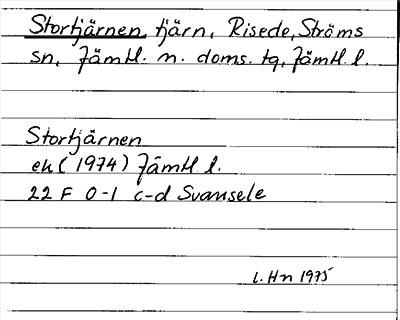 Stortjärnen, tjärn, Risede, Ströms
sn, Jämtl. n. doms. tg, Jämtl. l.
Stortjärnen
ek (1974) Jämtl. l.
22 F 0-1 c-d Svansele
L. Hn 1975